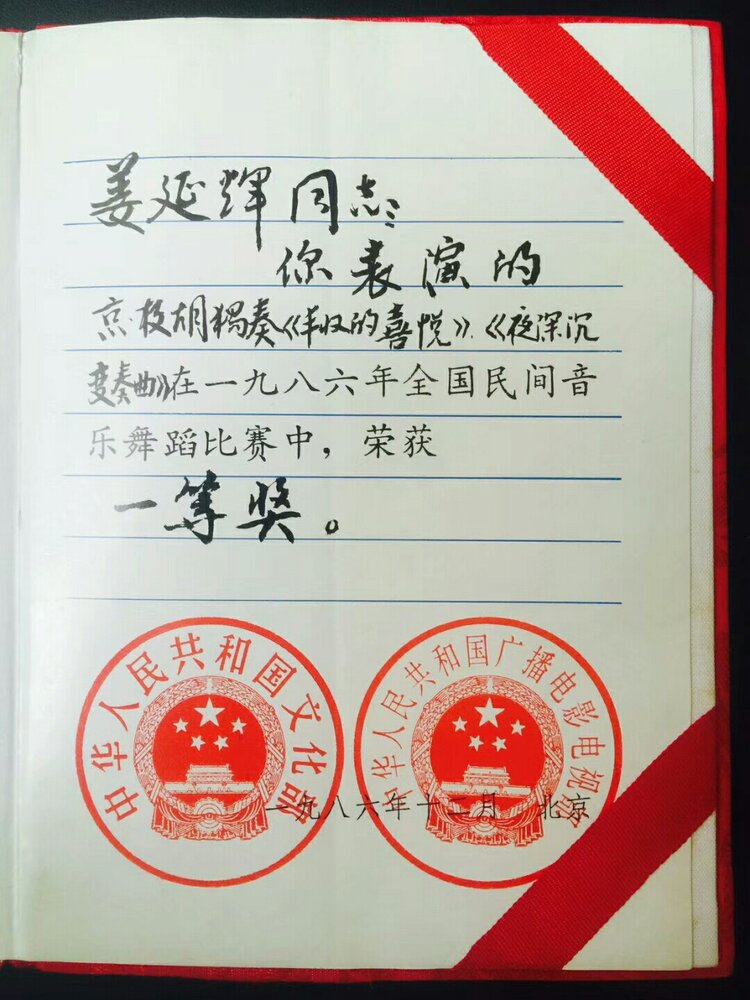 姜延辉同志:
你表演的
京板胡独奏《丰收的喜悦》、《夜深沉
变奏曲》在一九八六年全国民间音
乐舞蹈比赛中，荣获
一等奖。
中华人民共和国文化部
中华人民共和国广播电影电视部
一九八六年十二月 北京